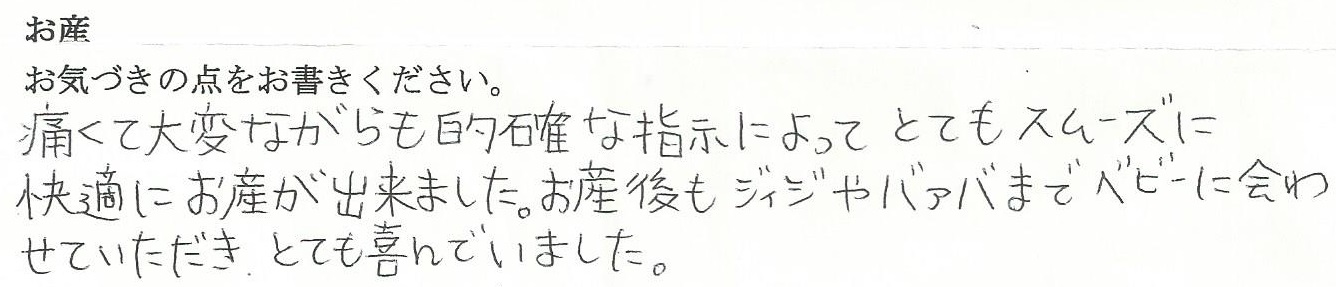 お産
お気づきの点をお書きください。
痛くて大変ながらも的確な指示によってとてもスムーズに
快適にお産が出来ました。お産後もジィジやバァバまでベビーに会わ
せていただき、とても喜んでいました。